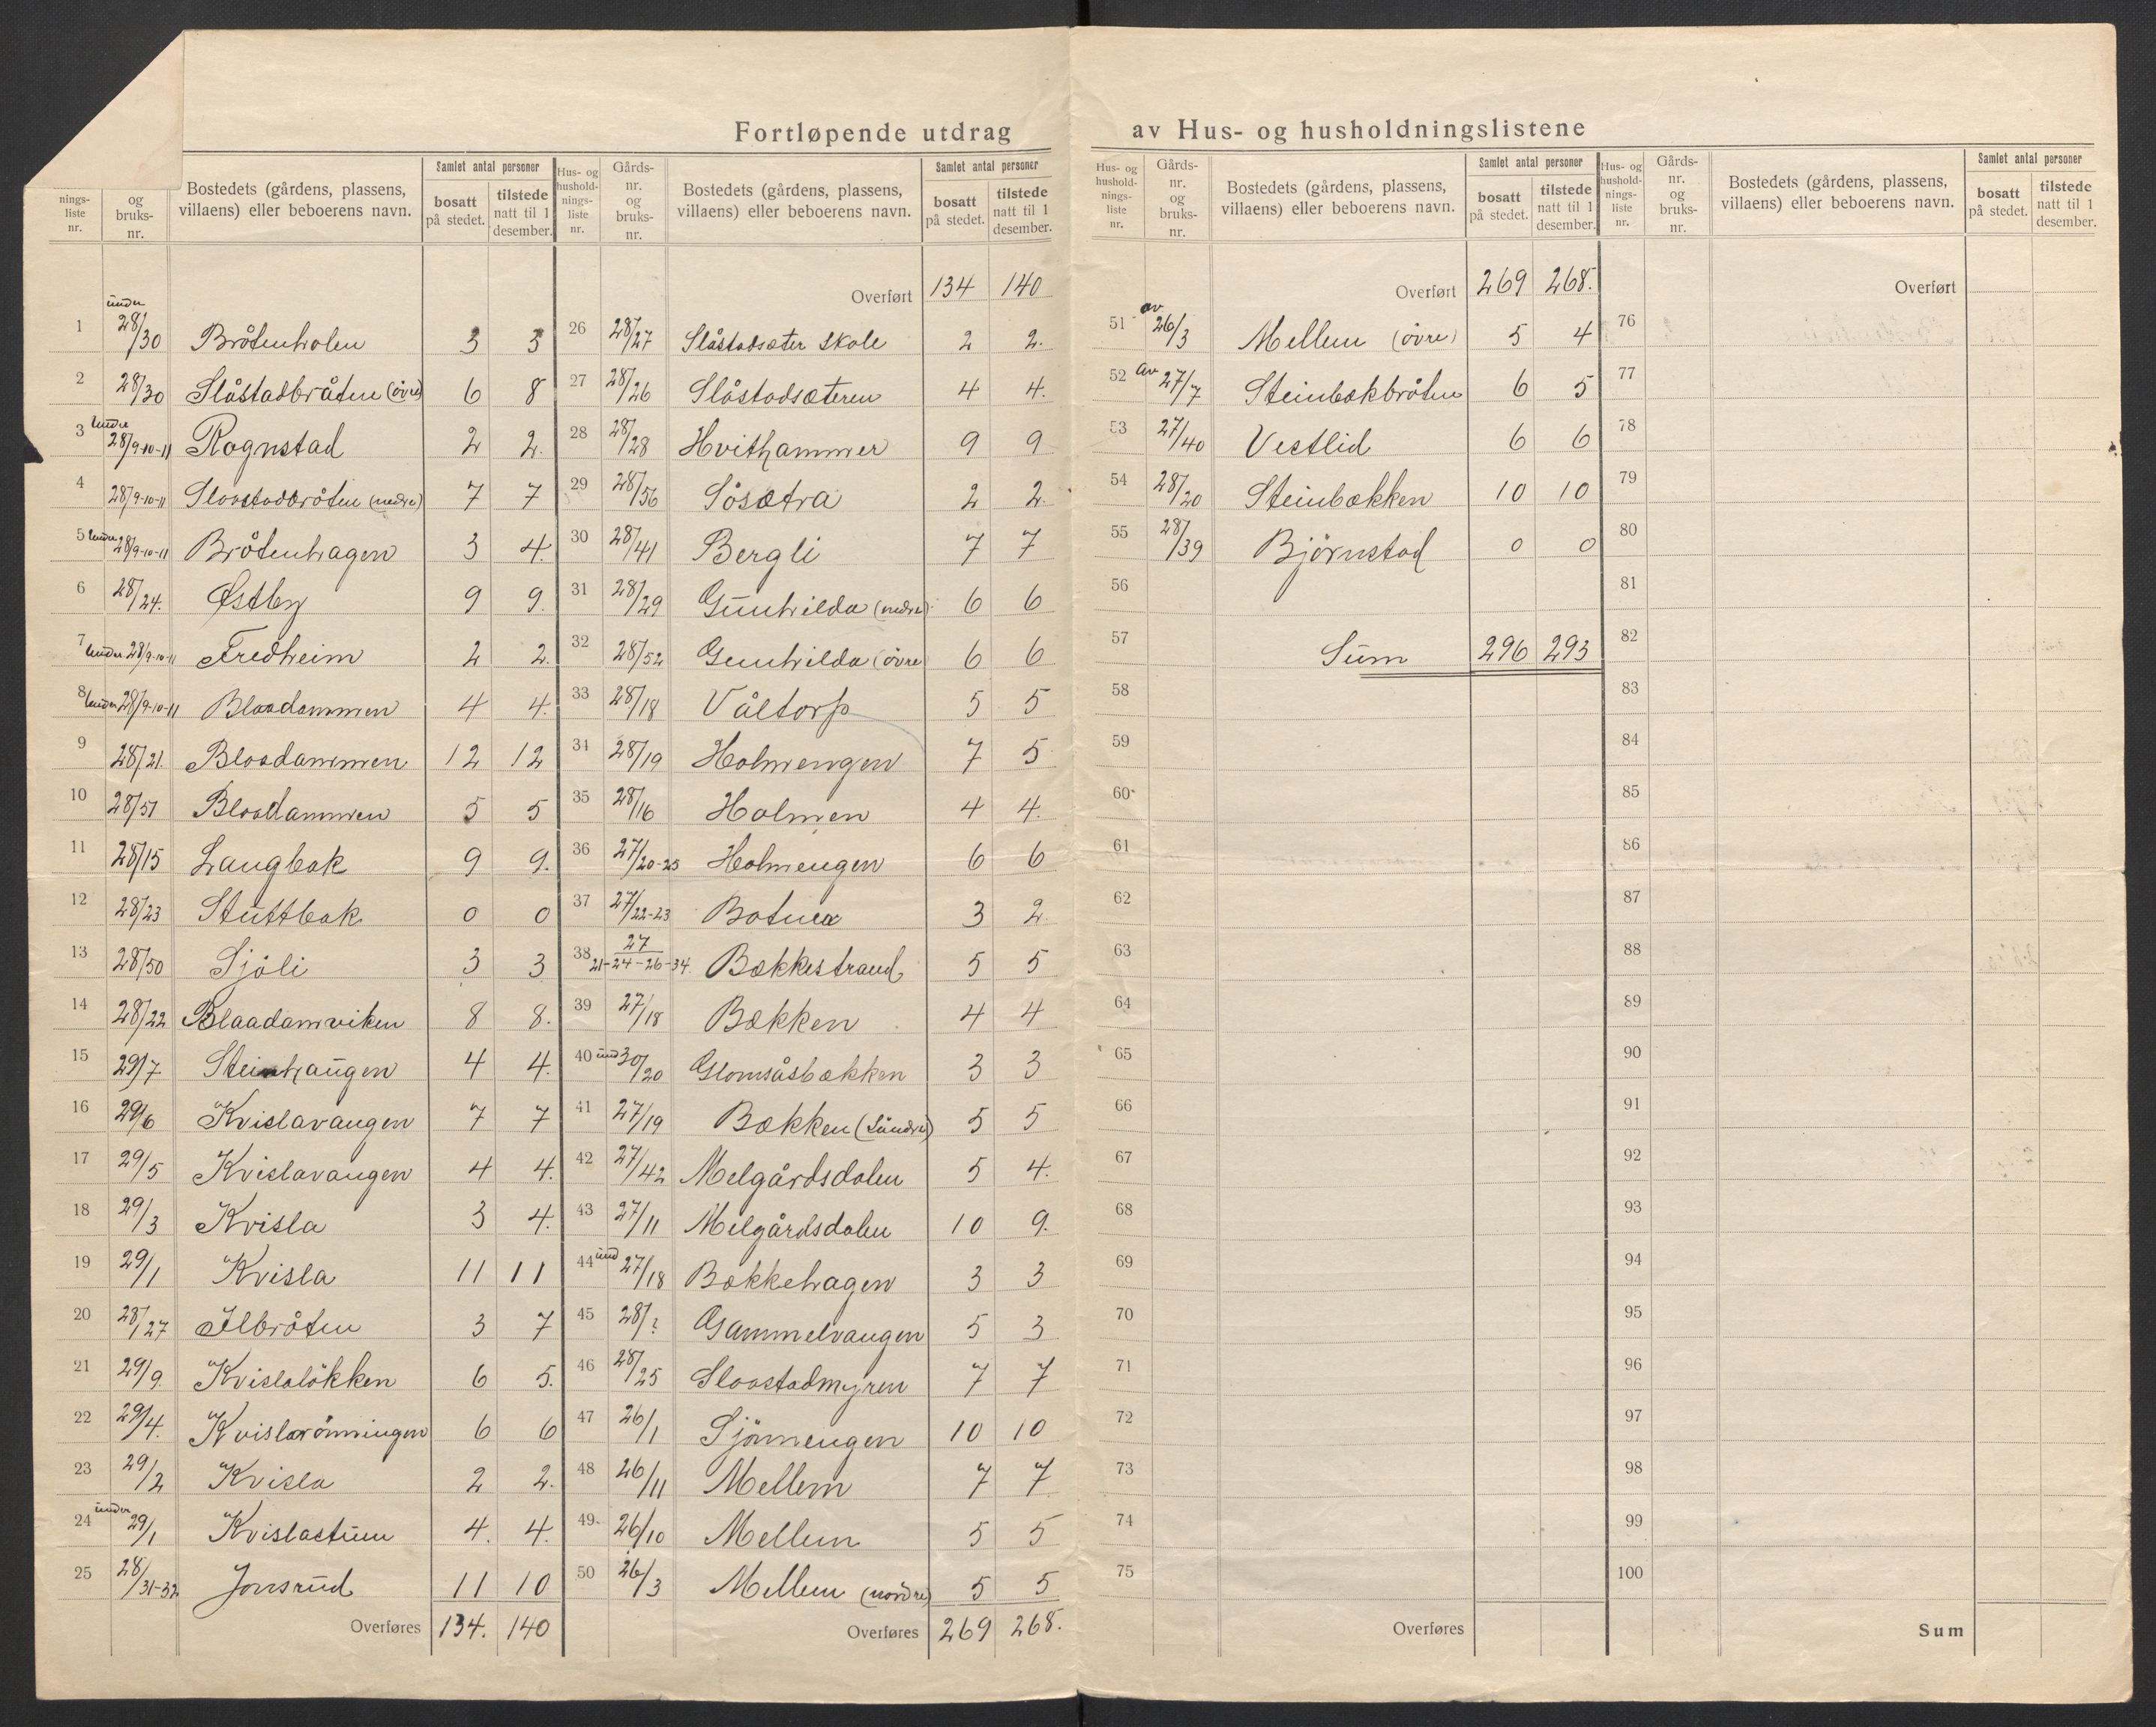 Fortløpende utdrag av Hus- og husholdningslistene
nings- liste nr. | og bruks- nr. | Bostedets (gårdens, plassens, villaens) eller beboerens navn. | Samlet antal personer | bosatt på stedet. | tilstede natt til 1 desember.
1 under 28/30 Bråtenholen 3 3
2 28/30 Slåstadbråten (övre) 6 8
3 under 28/9-10-11 Rognstad 2 2.
4 28/9-10-11 Slaastadbråten (nedre) 7 7
5 under 28/9-10-11 Bråtenhagen 3 4.
6 28/24. Østby 9 9.
7 under 28/9-10-11 Fredheim 2 2.
8 under 28/9-10-11 Blaadammen 4 4.
9 28/21. Blaadammen 12 12
10 28/51 Blaadammen 5 5
11 28/15 Langbak 9 9.
12 28/23 Stuttbak 0 0
13 28/50 Sjöli 3 3
14 28/22 Blaadamviken 8 8.
15 29/7 Steinhaugen 4 4.
16 29/6 Kvislavangen 7 7
17 29/5 Kvislavangen 4 4.
18 29/3 Kvisla 3 4.
19 29/1 Kvisla 11 11
20 28/27 Ilbråten 3 7
21 29/9. Kvislalökken 6 5.
22 29/4. Kvislarönningen 6 6
23 29/2 Kvisla 2 2.
24 under 29/1 Kvislastuen 4. 4.
25 28/31-32 Jonsrud 11 10
Overføres 134. 140
Hus- og hushold- nings- liste nr. | Gårds- nr. og bruks- nr. | Bostedets (gårdens, plassens, villaens) eller beboerens navn. | Samlet antal personer | bosatt på stedet. | tilstede natt til 1 desember.
Overført 134 140
26 28/27 Slåstadsæter skole 2 2.
27 28/26 Slåstadsæteren 4 4.
28 28/28 Hvithammer 9 9
29 28/56 Såsætra 2 2.
30 28/41 Bergli 7 7
31 28/29 Gunhilda (nedre) 6 6
32 28/52 Gunhilda (övre) 6 6
33 28/18 Våltorp 5 5
34 28/19 Holmengen 7 5
35 28/16 Holmen 4 4.
36 27/20-25 Holmengen 6 6
37 27/22-23 Botnea 3 2.
38 27/21-24-26-34. Bækkestrand 5 5
39 27/18 Bækken 4 4
40 und 30/20 Glomsåsbækken 3 3
41 27/19 Bækken (Söndre) 5 5
42 27/42 Melgårdsdalen 5 4.
43 27/11 Melgårdsdalen 10 9.
44 und 27/18 Bækkehagen 3 3
45 28/? Gammelvangen 5 3
46 28/25 Slaastadmyren 7 7
47 26/1 Sjönnengen 10 10
48 26/11 Mellem 7 7
49. 26/10 Mellem 5 5
50 26/3 Mellem (nordre) 5 5
Overføres 269 268.
Hus- og hushold- nings- liste nr. | Gårds- nr. og bruks- nr. | Bostedets (gårdens, plassens, villaens) eller beboerens navn. | Samlet antal personer | bosatt på stedet. | tilstede natt til 1 desember.
Overført 269 268.
51 av 26/3 Mellem (övre) 5 4
52 av 27/7 Steinbækbråten 6 5
53 27/40 Vestlid 6 6
54 28/20 Steinbækken 10 10
55 28/39 Björnstad 0 0
56
57 Sum 296 293
58
59
60
61
62
63
64
65
66
67
68
69
70
71
72
73
74
75
Overføres
Hus- og hushold- nings- liste nr. | Gårds- nr. og bruks- nr. | Bostedets (gårdens, plassens, villaens) eller beboerens navn. | Samlet antal personer | bosatt på stedet. | tilstede natt til 1 desember.
Overført
76
77
78
79
80
81
82
83
84
85
86
87
88
89
90
91
92
93
94
95
96
97
98
99
100
Sum